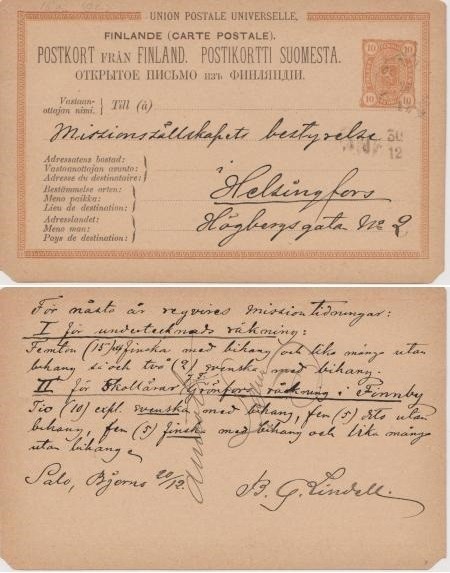 UNION POSTALE UNIVERSELLE.
FINLANDE (CARTE POSTALE).
POSTKORT FRÅN FINLAND. POSTIKORTTI SUOMESTA.
ОТКРЫТОЕ ПИСЬМО изъ ФИНЛЯНДІИ.
10 10
10 10
Vastaan-
ottajan nimi. Till (à)
Missionssällskapets bestyrelse
30
12
Adressatens bostad:
Vastaanottajan asunto:
Adresse du destinataire:
i
Helsingfors
Bestämmelse orten:
Meno paikka:
Lieu de destination:
Högbergsgata No 2
Adresslandet:
Meno maa:
Pays de destination:
För nästa år reqvireras missionstidningar:
I för undertecknads räkning:
Femton (15) finska med bihang och lika många utan
bihang och två (2) svenska med bihang.
II för Skollärar Grönfors räkning i Finnby
Tio (10) expl. svenska med bihang, fem (5) dito utan
bihang, fem (5) finska med bihang och lika många
utan bihang
Salo, Bjerno 20/12.
B. G. Lindell.